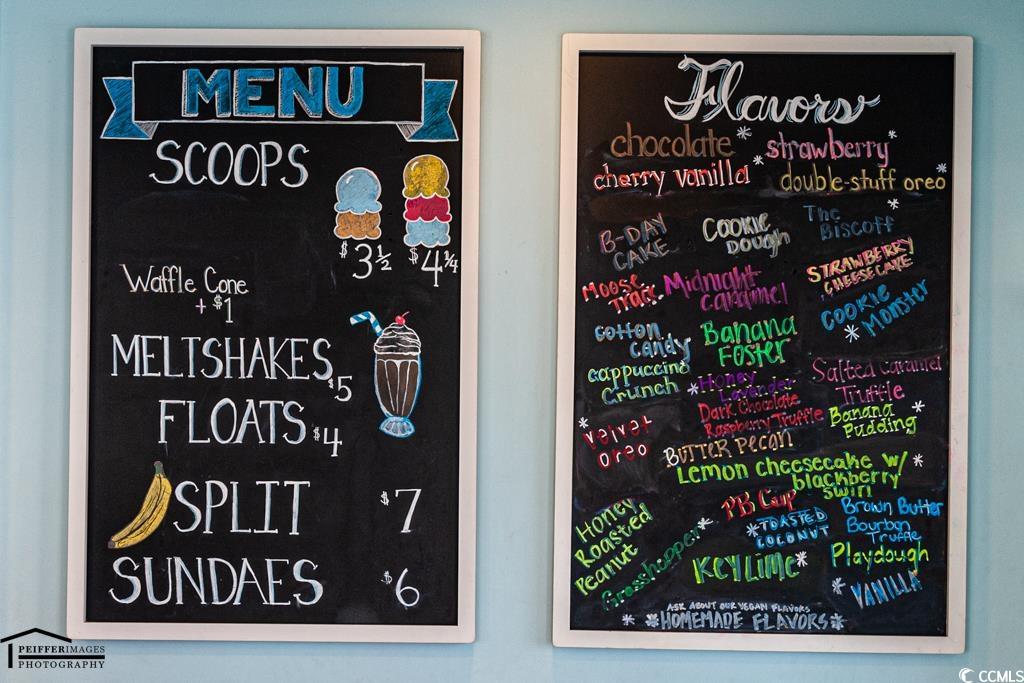 MENU
SCOOPS
$3 1/2
$4 1/4
Waffle Cone
+ $1
MELTSHAKES $5
FLOATS $4
SPLIT $7
SUNDAES $6
Flavors
chocolate * strawberry *
cherry vanilla double-stuff oreo *
B-DAY
CAKE
COOKIE
DOUGH
The
BISCOFF
MOOSE
TRACK
Midnight
caramel
STRAWBERRY
CHEESECAKE
cotton
candy
Banana
FOSTER
COOKIE
MONSTER *
cappuccino
crunch
* Honey
Lavender
Salted caramel
Truffle
* Velvet
oreo
Dark Chocolate
Raspberry Truffle
Banana
Pudding
BUTTER Pecan
Lemon cheesecake w/
blackberry
swirl *
Honey
Roasted
Peanut
PB Cup
Brown Butter
Bourbon
Truffle
Grasshopper *
* TOASTED
COCONUT
KEY LIME *
Playdough
* VANILLA
ASK ABOUT OUR VEGAN FLAVORS
* *HOMEMADE FLAVORS* *
PEIFFERIMAGES
PHOTOGRAPHY
CCMLS